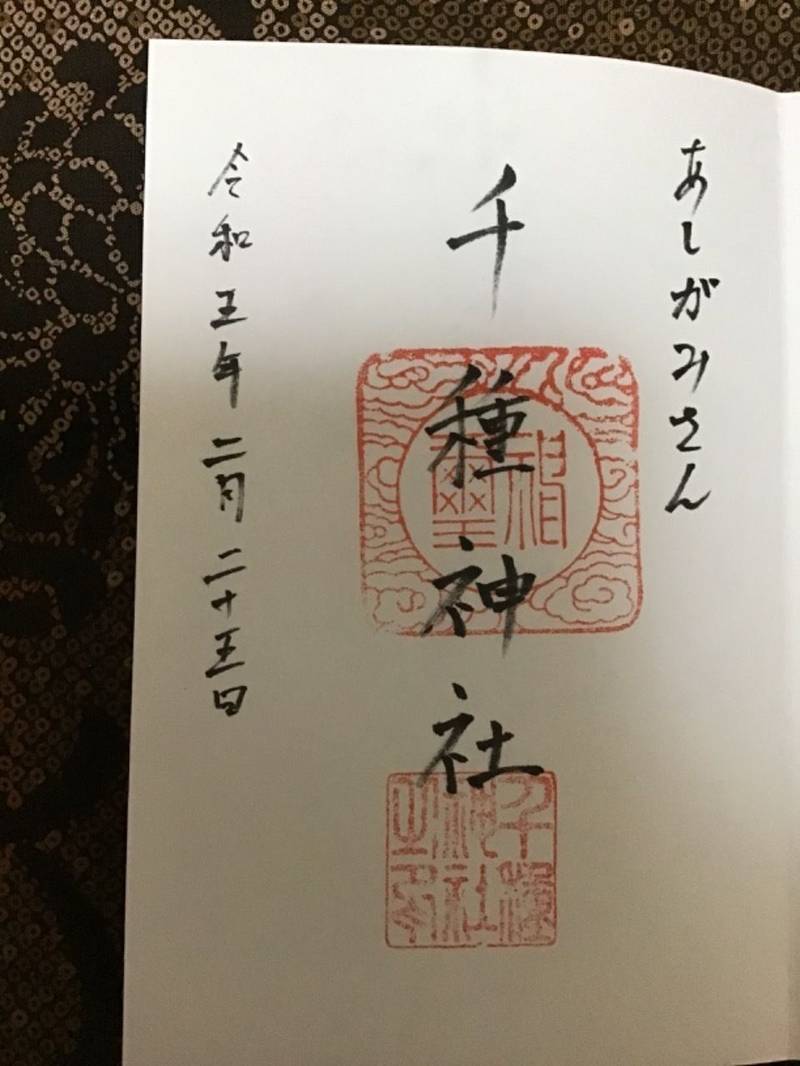 あしがみさん
千種神社
神璽
千種神社之印
令和五年二月二十五日